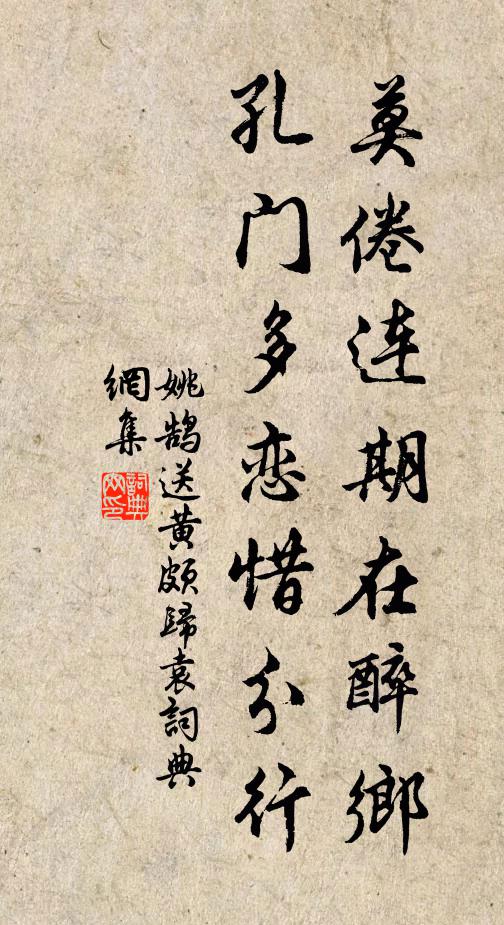 莫倦连期在醉鄉
孔门多恋惜分行
姚鹄送黄颇歸袁詞典
網集
詞典
网印